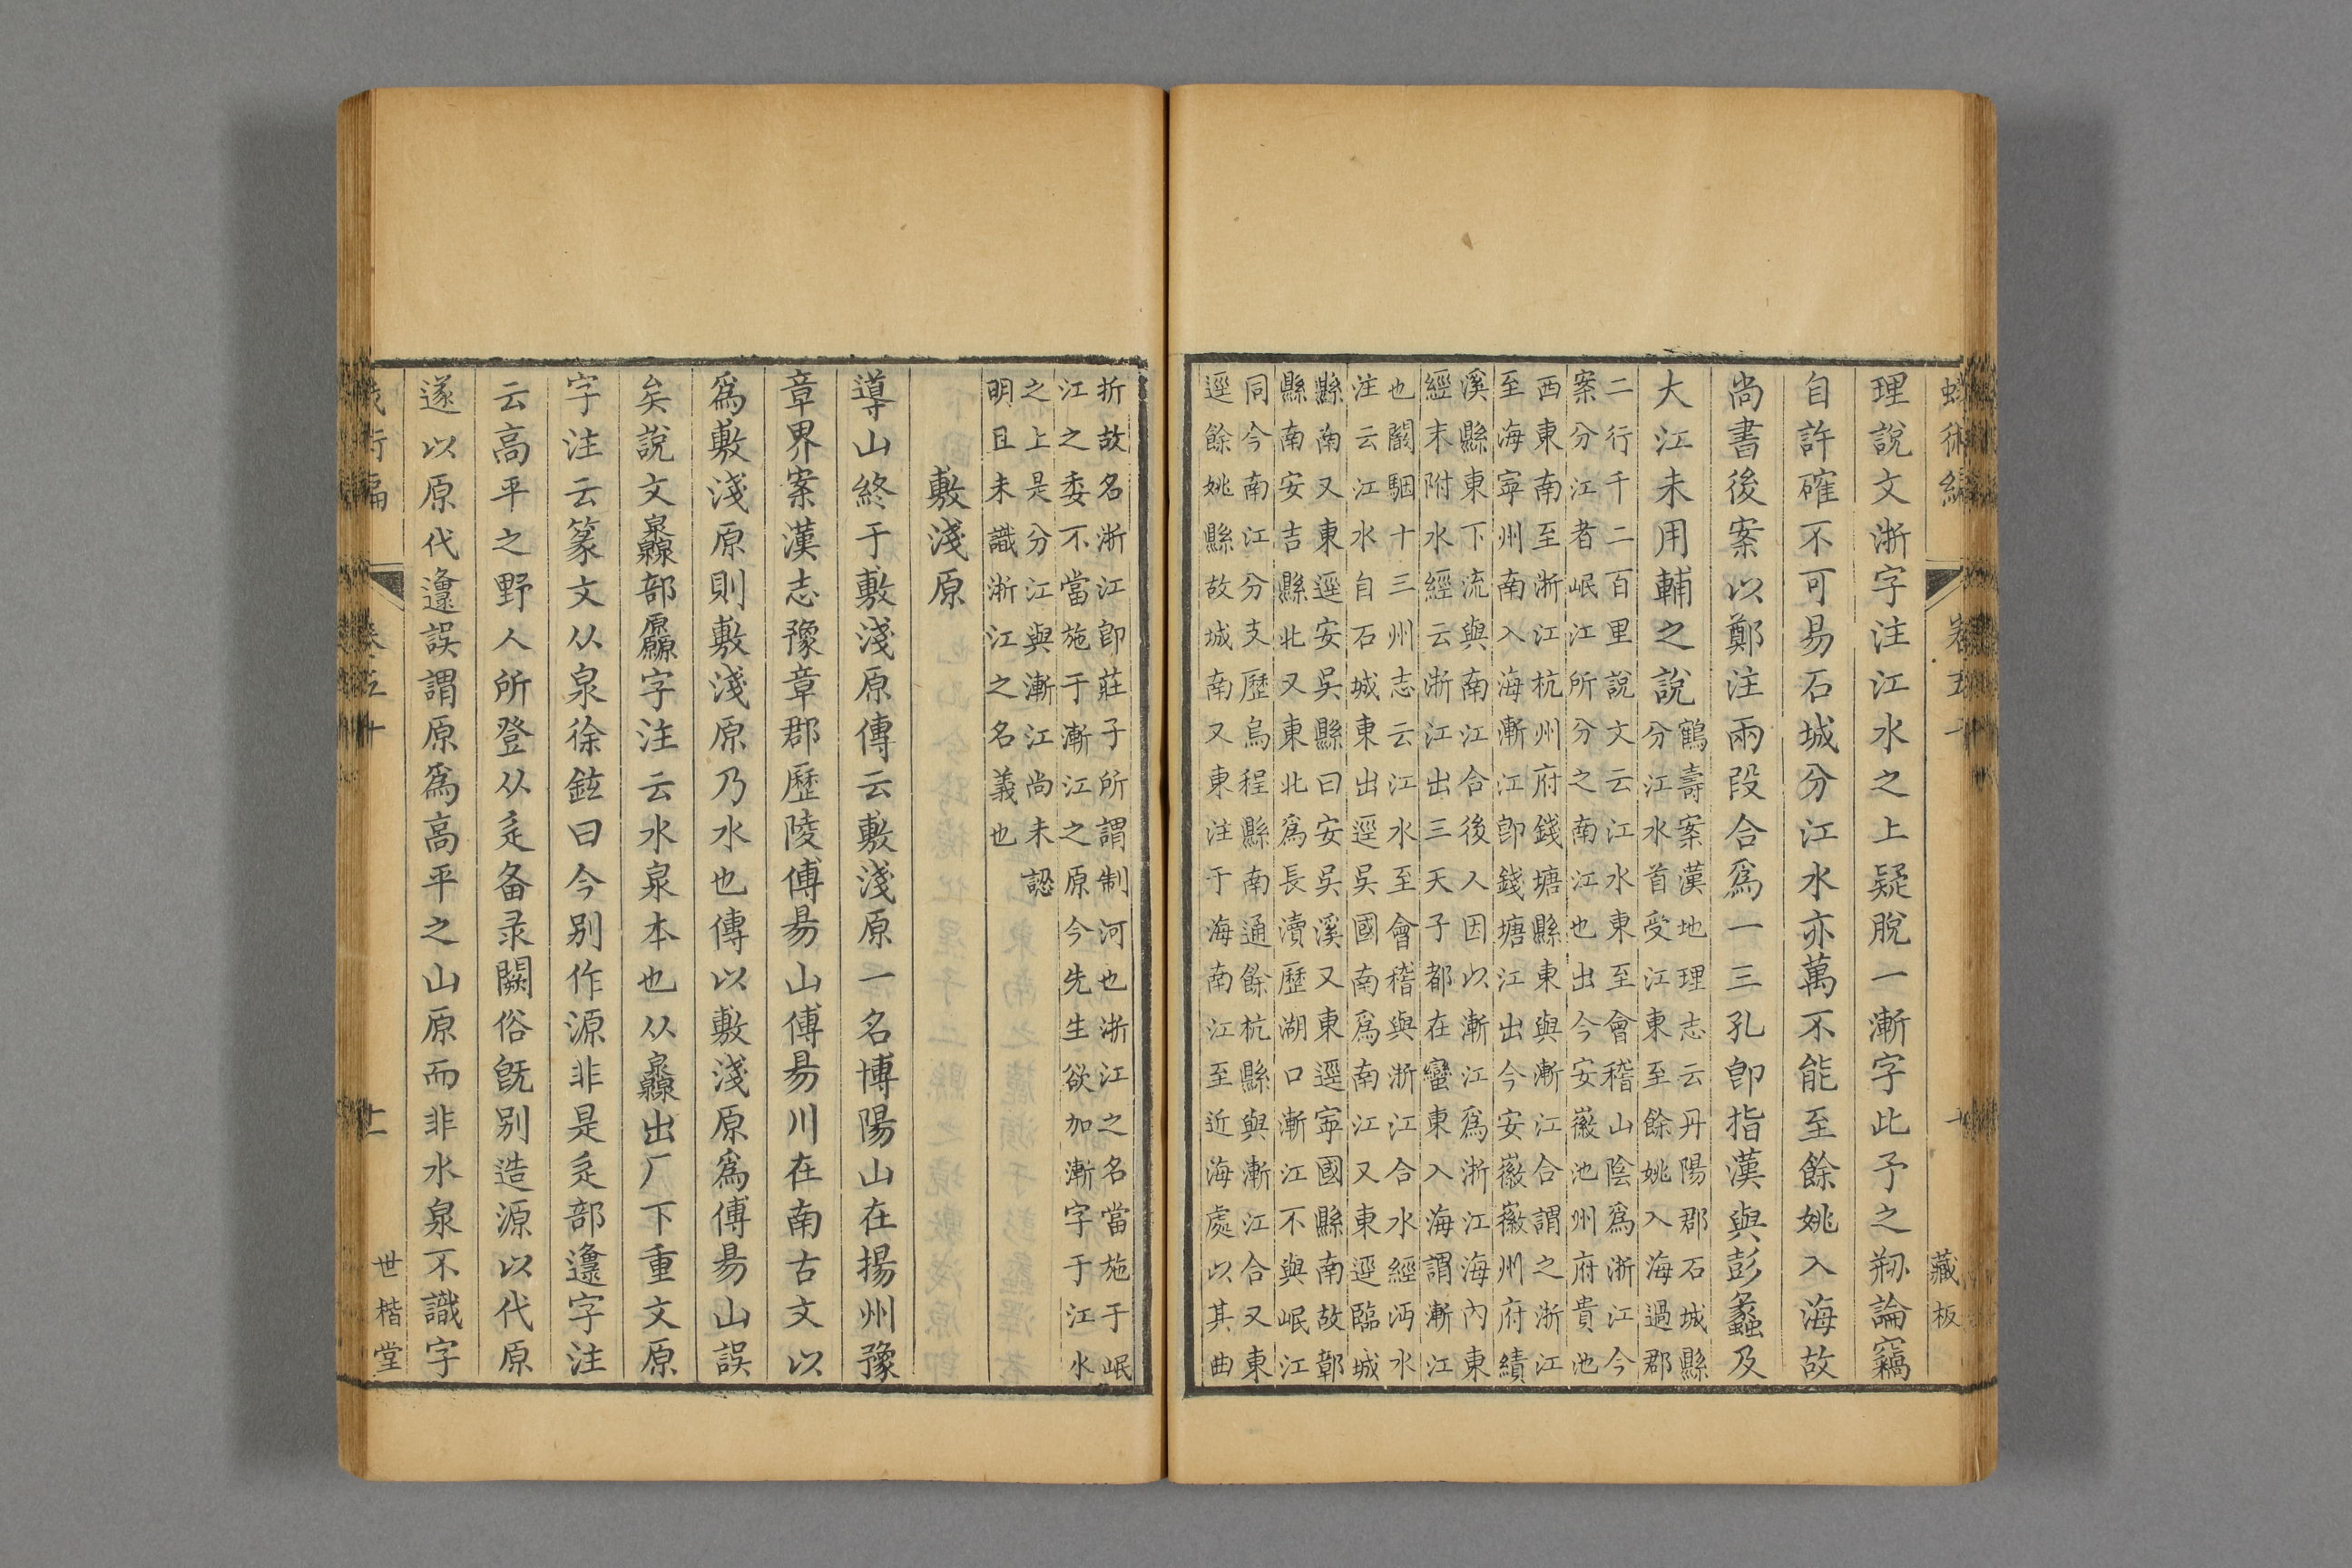 蛾術編 卷五十 十 藏板
理說文浙字注江水之上疑脫一漸字此予之剏論竊
自許確不可易石城分江水亦萬不能至餘姚入海故
尚書後案以鄭注兩段合爲一三孔卽指漢與彭蠡及
大江未用輔之說
鶴壽案漢地理志云丹陽郡石城縣
分江水首受江東至餘姚入海過郡
二行千二百里說文云江水東至會稽山陰爲浙江今
案分江者岷江所分之南江也出今安徽池州府貴池
西東南至浙江杭州府錢塘縣東與漸江合謂之浙江
至海寧州南入海漸江卽錢塘江出今安徽徽州府績
溪縣東下流與南江合後人因以漸江爲浙江海內東
經末附水經云浙江出三天子都在蠻東入海謂漸江
也闞駰十三州志云江水至會稽與浙江合水經沔水
注云江水自石城東出逕吳國南爲南江又東逕臨城
縣南又東逕安吳縣曰安吳溪又東逕寧國縣南故鄣
縣南安吉縣北又東北爲長瀆歷湖口漸江不與岷江
同今南江分支歷烏程縣南通餘杭縣與漸江合又東
逕餘姚縣故城南又東注于海南江至近海處以其曲
折故名浙江卽莊子所謂制河也浙江之名當施于岷
江之委不當施于漸江之原今先生欲加漸字于江水
之上是分江與漸江尚未認
明且未識浙江之名義也
敷淺原
導山終于敷淺原傳云敷淺原一名博陽山在揚州豫
章界案漢志豫章郡歷陵傅昜山傅昜川在南古文以
爲敷淺原則敷淺原乃水也傳以敷淺原爲傅昜山誤
矣說文灥部厵字注云水泉本也从灥出厂下重文原
字注云篆文从泉徐鉉曰今别作源非是辵部邍字注
云高平之野人所登从辵备录闕俗旣别造源以代原
遂以原代邍誤謂原爲高平之山原而非水泉不識字
術編 卷五十 世楷堂